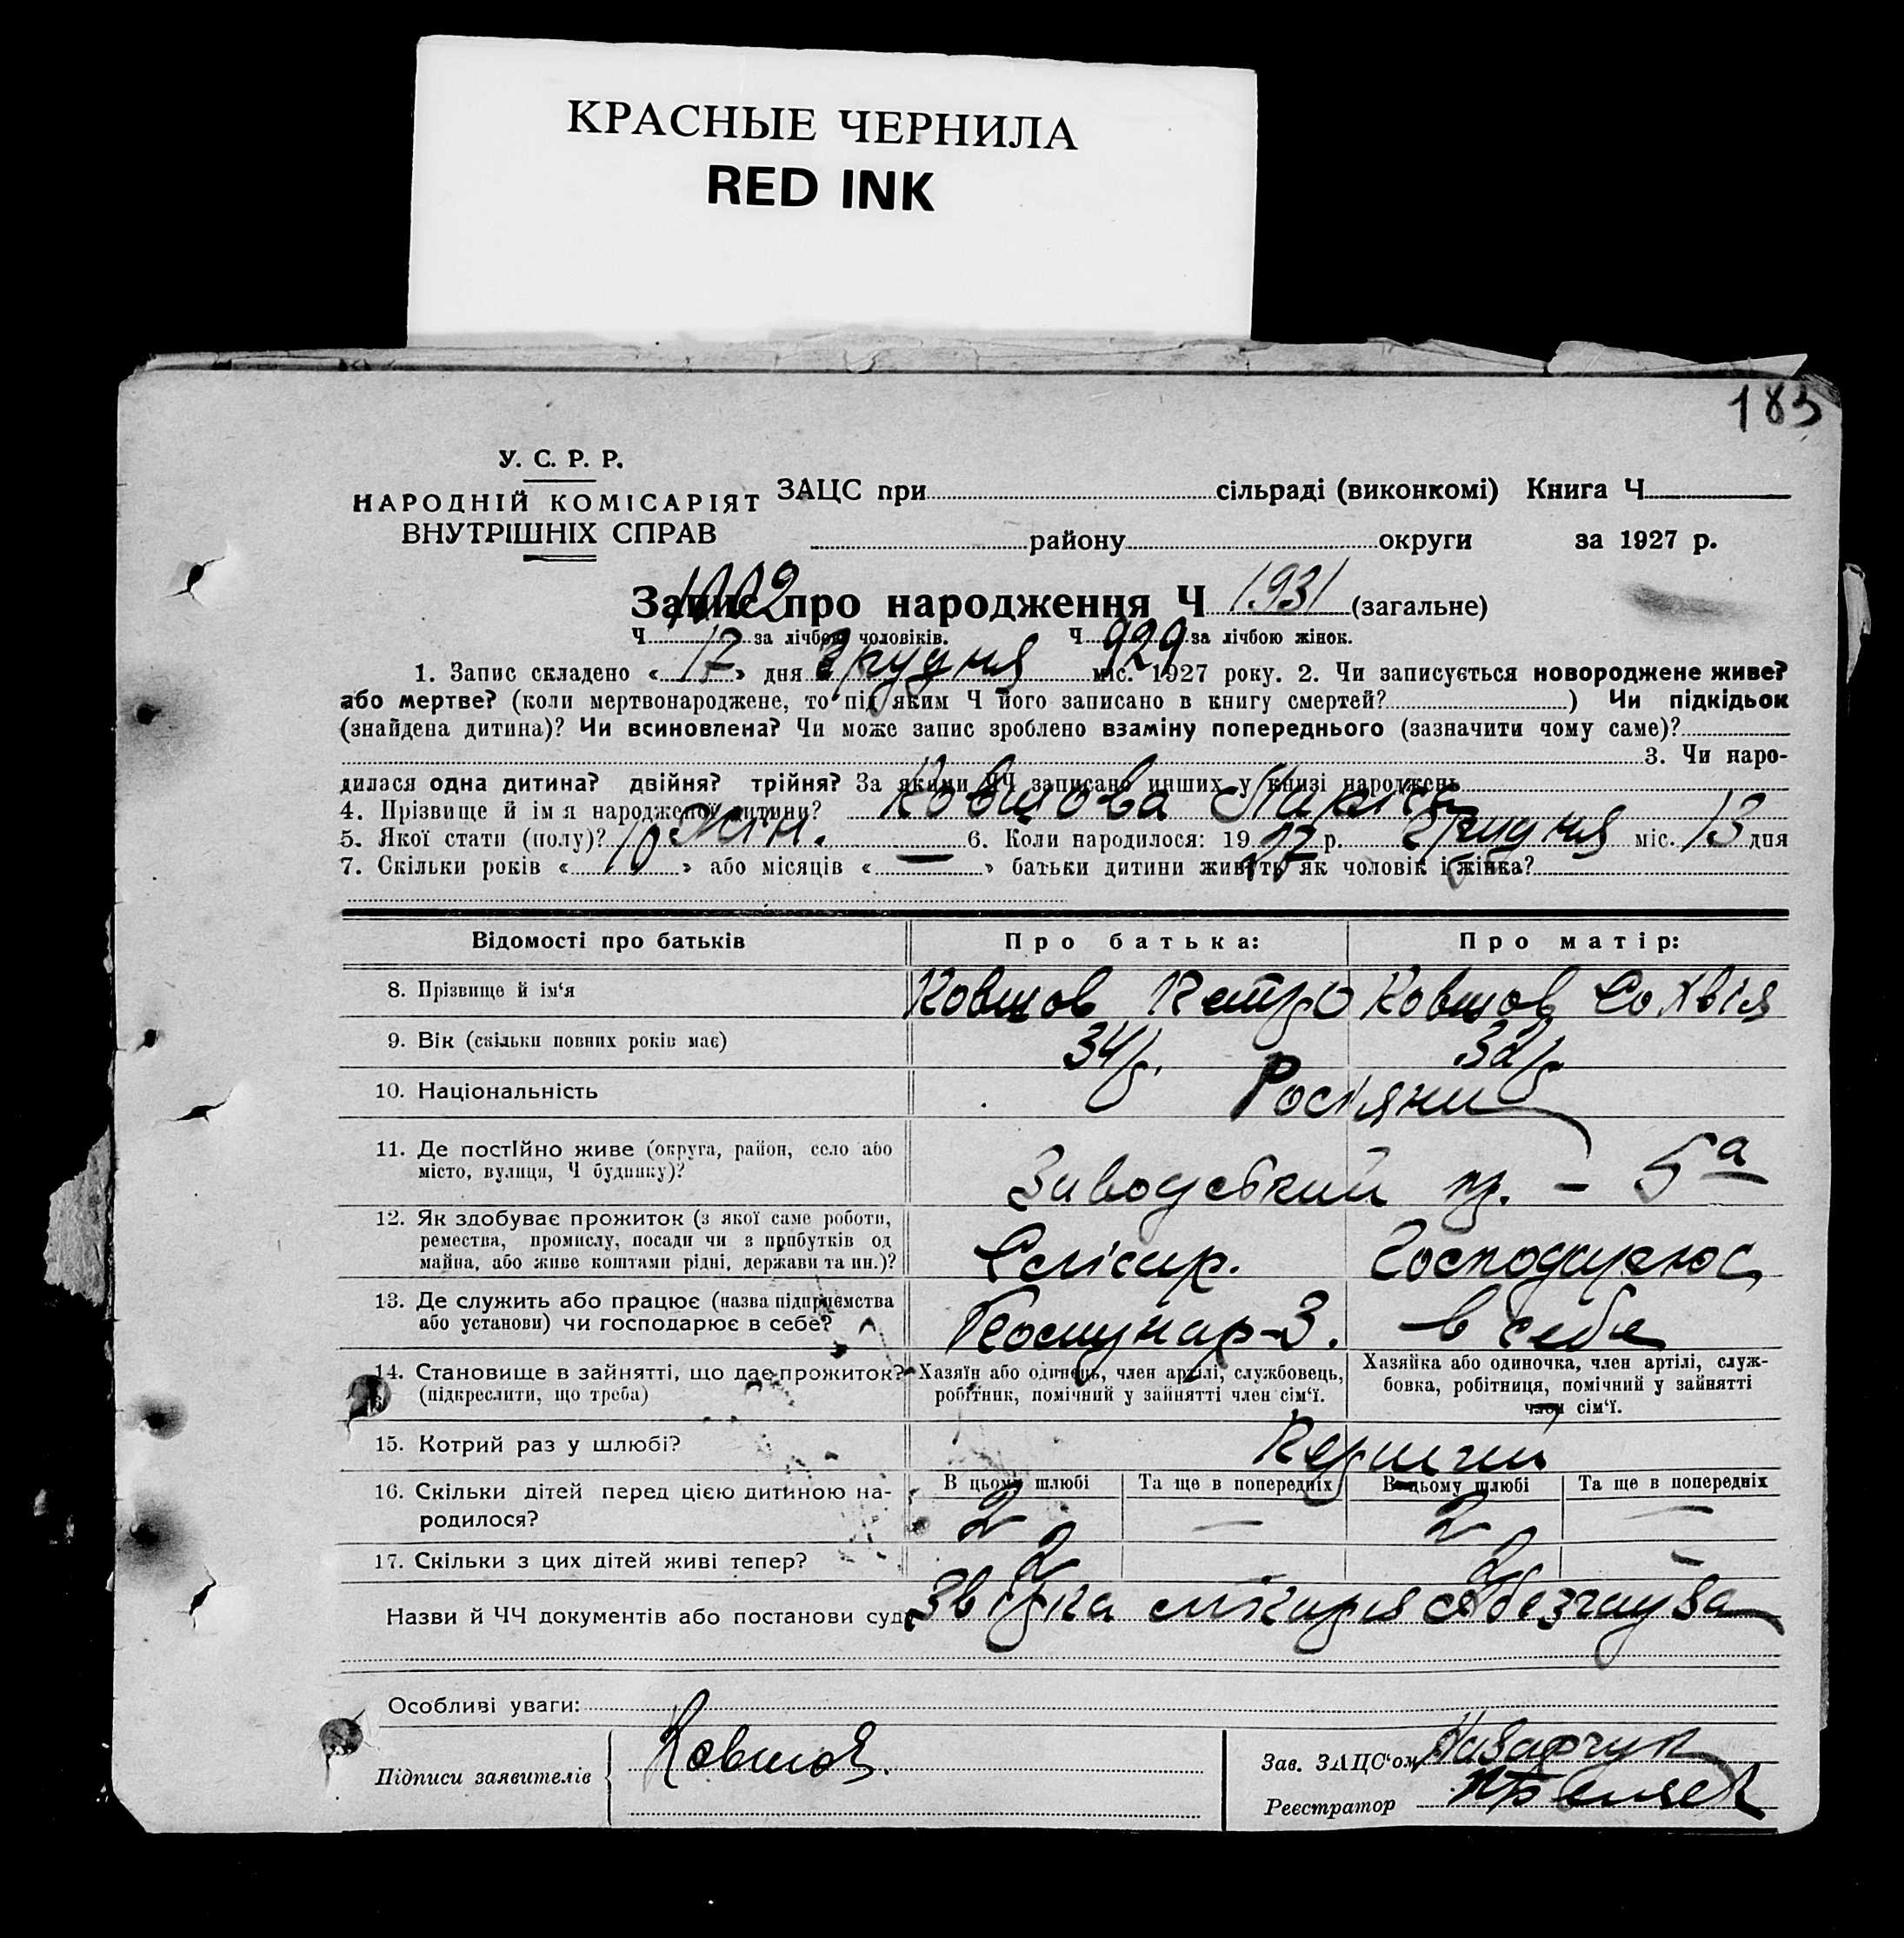 КРАСНЫЕ ЧЕРНИЛА
RED INK
183
У. С. Р. Р.
НАРОДНІЙ КОМІСАРІЯТ
ВНУТРІШНІХ СПРАВ
ЗАЦС при сільраді (виконкомі) Книга Ч
району округи за 1927 р.
Запис про народження Ч 1931 (загальне)
Ч 1002 за лічбою чоловіків. Ч 929 за лічбою жінок.
1. Запис складено « 17 » дня Грудня міс. 1927 року. 2. Чи записується новороджене живе?
або мертве? (коли мертвонароджене, то під яким Ч його записано в книгу смертей? ) Чи підкідьок
(знайдена дитина)? Чи всиновлена? Чи може запис зроблено взаміну попереднього (зазначити чому саме)?
3. Чи наро-
дилася одна дитина? двійня? трійня? За якими ЧЧ записано инших у книзі народжень
4. Прізвище й ім я народженої дитини? Ковшова
5. Якої стати (полу)? Жін. 6. Коли народилося: 19 27 р. Грудня міс. 13 дня
7. Скільки років « 10 » або місяців « — » батьки дитини живуть як чоловік і жінка?
Відомості про батьків Про батька: Про матір:
8. Прізвище й ім‘я Ковшов Петро Ковшов Софвія
9. Вік (скільки повних років має) 34 р. 32 р.
10. Національність Росіяни
11. Де постійно живе (округа, район, село або
місто, вулиця, Ч будинку)? Заводський пр. – 5а
12. Як здобуває прожиток (з якої саме роботи,
ремества, промислу, посади чи з прибутків од
майна, або живе коштами рідні, держави та ин.)? Слісар. Господарює
13. Де служить або працює (назва підприємства
або установи) чи господарює в себе? Комунар-З. в себе
14. Становище в зайнятті, що дає прожиток?
(підкреслити, що треба)
Хазяїн або одинець, член артілі, службовець,
робітник, помічний у зайнятті член сім‘ї.
Хазяйка або одиночка, член артілі, служ-
бовка, робітниця, помічний у зайнятті
член сім‘ї.
15. Котрий раз у шлюбі? Перший
В цьому шлюбі Та ще в попередніх В цьому шлюбі Та ще в попередніх
16. Скільки дітей перед цією дитиною на-
родилося? 2 — 2 —
17. Скільки з цих дітей живі тепер? 2 2 –
Назви й ЧЧ документів або постанови суду Звістка лікаря
Особливі уваги:
Підписи заявителів Ковшов.
Зав. ЗАЦС‘ом
Реєстратор